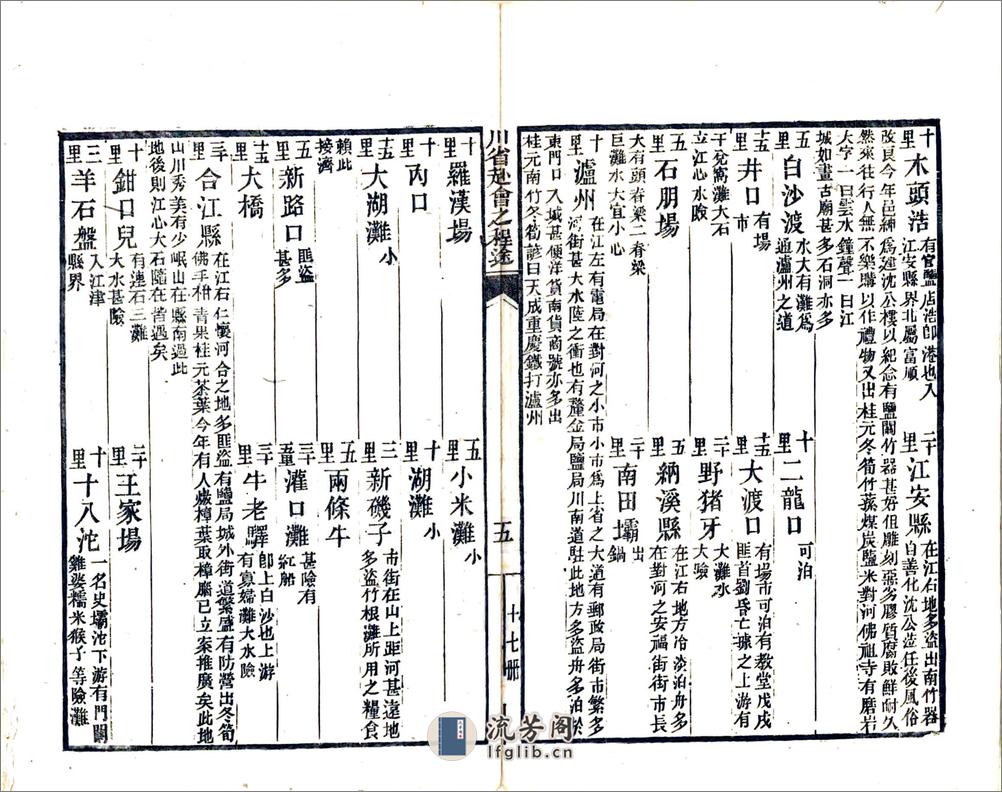 十里 木頭浩 有官鹽店浩卽港也入
江安縣界北屬富順
二十里 江安縣 在江右地多盜出南竹器
自善化沈公蒞任後風俗
改良今年邑紳為建沈公樓以紀念有鹽關竹器甚好但雕刻弱劣膠質腐敗鮮耐久
然來往行人無不樂購以作禮物又出桂元冬筍竹蓀煤炭鹽米對河佛祖寺有磨岩
大字一曰雲水鐘聲一曰江
城如畫古廟甚多石洞亦多
五里 白沙渡 水大有灘爲
通瀘州之道
十里 二龍口 可泊
十五里 井口 有場
市
十五里 大渡口 有場市可泊有教堂戊戌
匪首劉昏亡據之上游有
干兌窩灘大石
立江心水險
二十里 野猪牙 大灘水
大險
五里 石朋場
五里 納溪縣 在江右地方冷淡泊舟多
在對河之安福街街市長
大有頭脊梁二脊梁
巨灘水大宜小心
二十里 南田壩 出
鍋
十里 瀘州 在江左有電局在對河之小市小市爲上省之大道有郵政局街市繁多
河街甚大水陸之衝也有釐金局鹽局川南道駐此地方多盜舟多泊於
東門口入城甚便洋貨南貨商號亦多出
桂元南竹冬筍諺曰天成重慶鐵打瀘州
川省赴會之程途
五
十七册
十里 羅漢場
五里 小米灘 小
十里 內口
十里 湖灘 小
十五里 大湖灘 小
三里 新磯子 市街在山上距河甚遠地
多盜竹根灘所用之糧食
賴此
接濟
五里 兩條牛
五里 新路口 匪盜
甚多
三十五里 灌口灘 甚險有
紅船
十五里 大橋
三十里 牛老驛 卽上白沙也上游
有寡婦灘大水險
三十里 合江縣 在江右仁懷河合之地多匪盜有鹽局城外街道繁盛有防營出冬筍
佛手柑青果桂元茶葉今年有人燬樟葉取樟腦已立案推廣矣此地
山川秀美有少岷山在縣南過此
地後則江心大石隨在皆遇矣
十里 鉗口兒 有連石三灘
大水甚險
二十里 王家場
三里 羊石盤 入江津
縣界
十里 十八沱 一名史壩沱下游有門關
雞婆糯米猴子等險灘
流芳閣
lfglib.cn